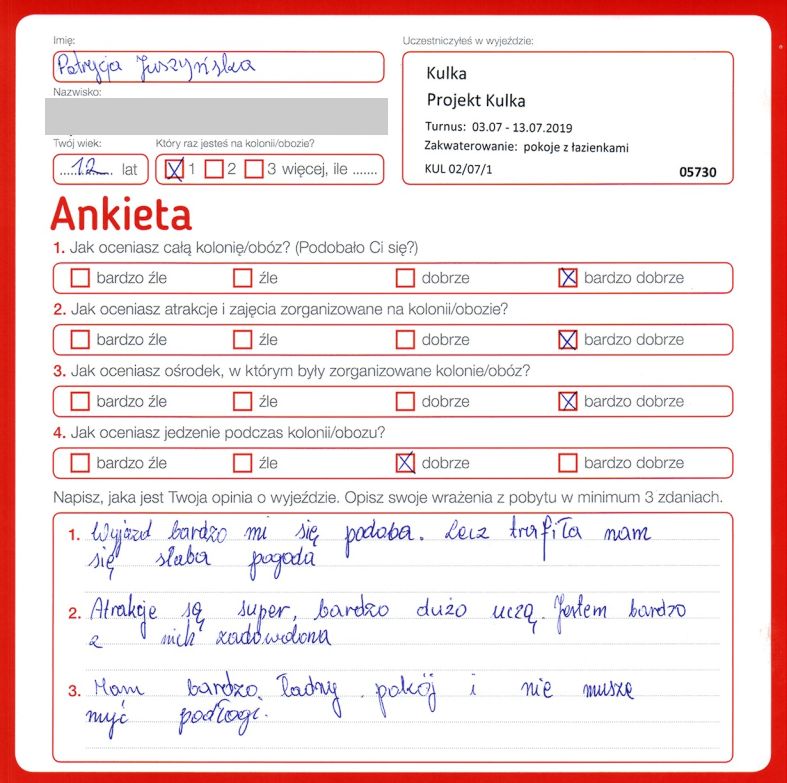 Imię:
Patrycja Juszyńska
Nazwisko:
Twój wiek:
12 lat
Który raz jesteś na kolonii/obozie?
1 2 3 więcej, ile .......
Uczestniczyłeś w wyjeździe:
Kulka
Projekt Kulka
Turnus: 03.07 - 13.07.2019
Zakwaterowanie: pokoje z łazienkami
KUL 02/07/1 05730
Ankieta
1. Jak oceniasz całą kolonię/obóz? (Podobało Ci się?)
bardzo źle źle dobrze bardzo dobrze
2. Jak oceniasz atrakcje i zajęcia zorganizowane na kolonii/obozie?
bardzo źle źle dobrze bardzo dobrze
3. Jak oceniasz ośrodek, w którym były zorganizowane kolonie/obóz?
bardzo źle źle dobrze bardzo dobrze
4. Jak oceniasz jedzenie podczas kolonii/obozu?
bardzo źle źle dobrze bardzo dobrze
Napisz, jaka jest Twoja opinia o wyjeździe. Opisz swoje wrażenia z pobytu w minimum 3 zdaniach.
1. Wyjazd bardzo mi się podoba. Lecz trafiła nam
się słaba pogoda
2. Atrakcje są super, bardzo dużo uczą. Jestem bardzo
z nich zadowolona
3. Mam bardzo ładny pokój i nie muszę
myć podłogi.